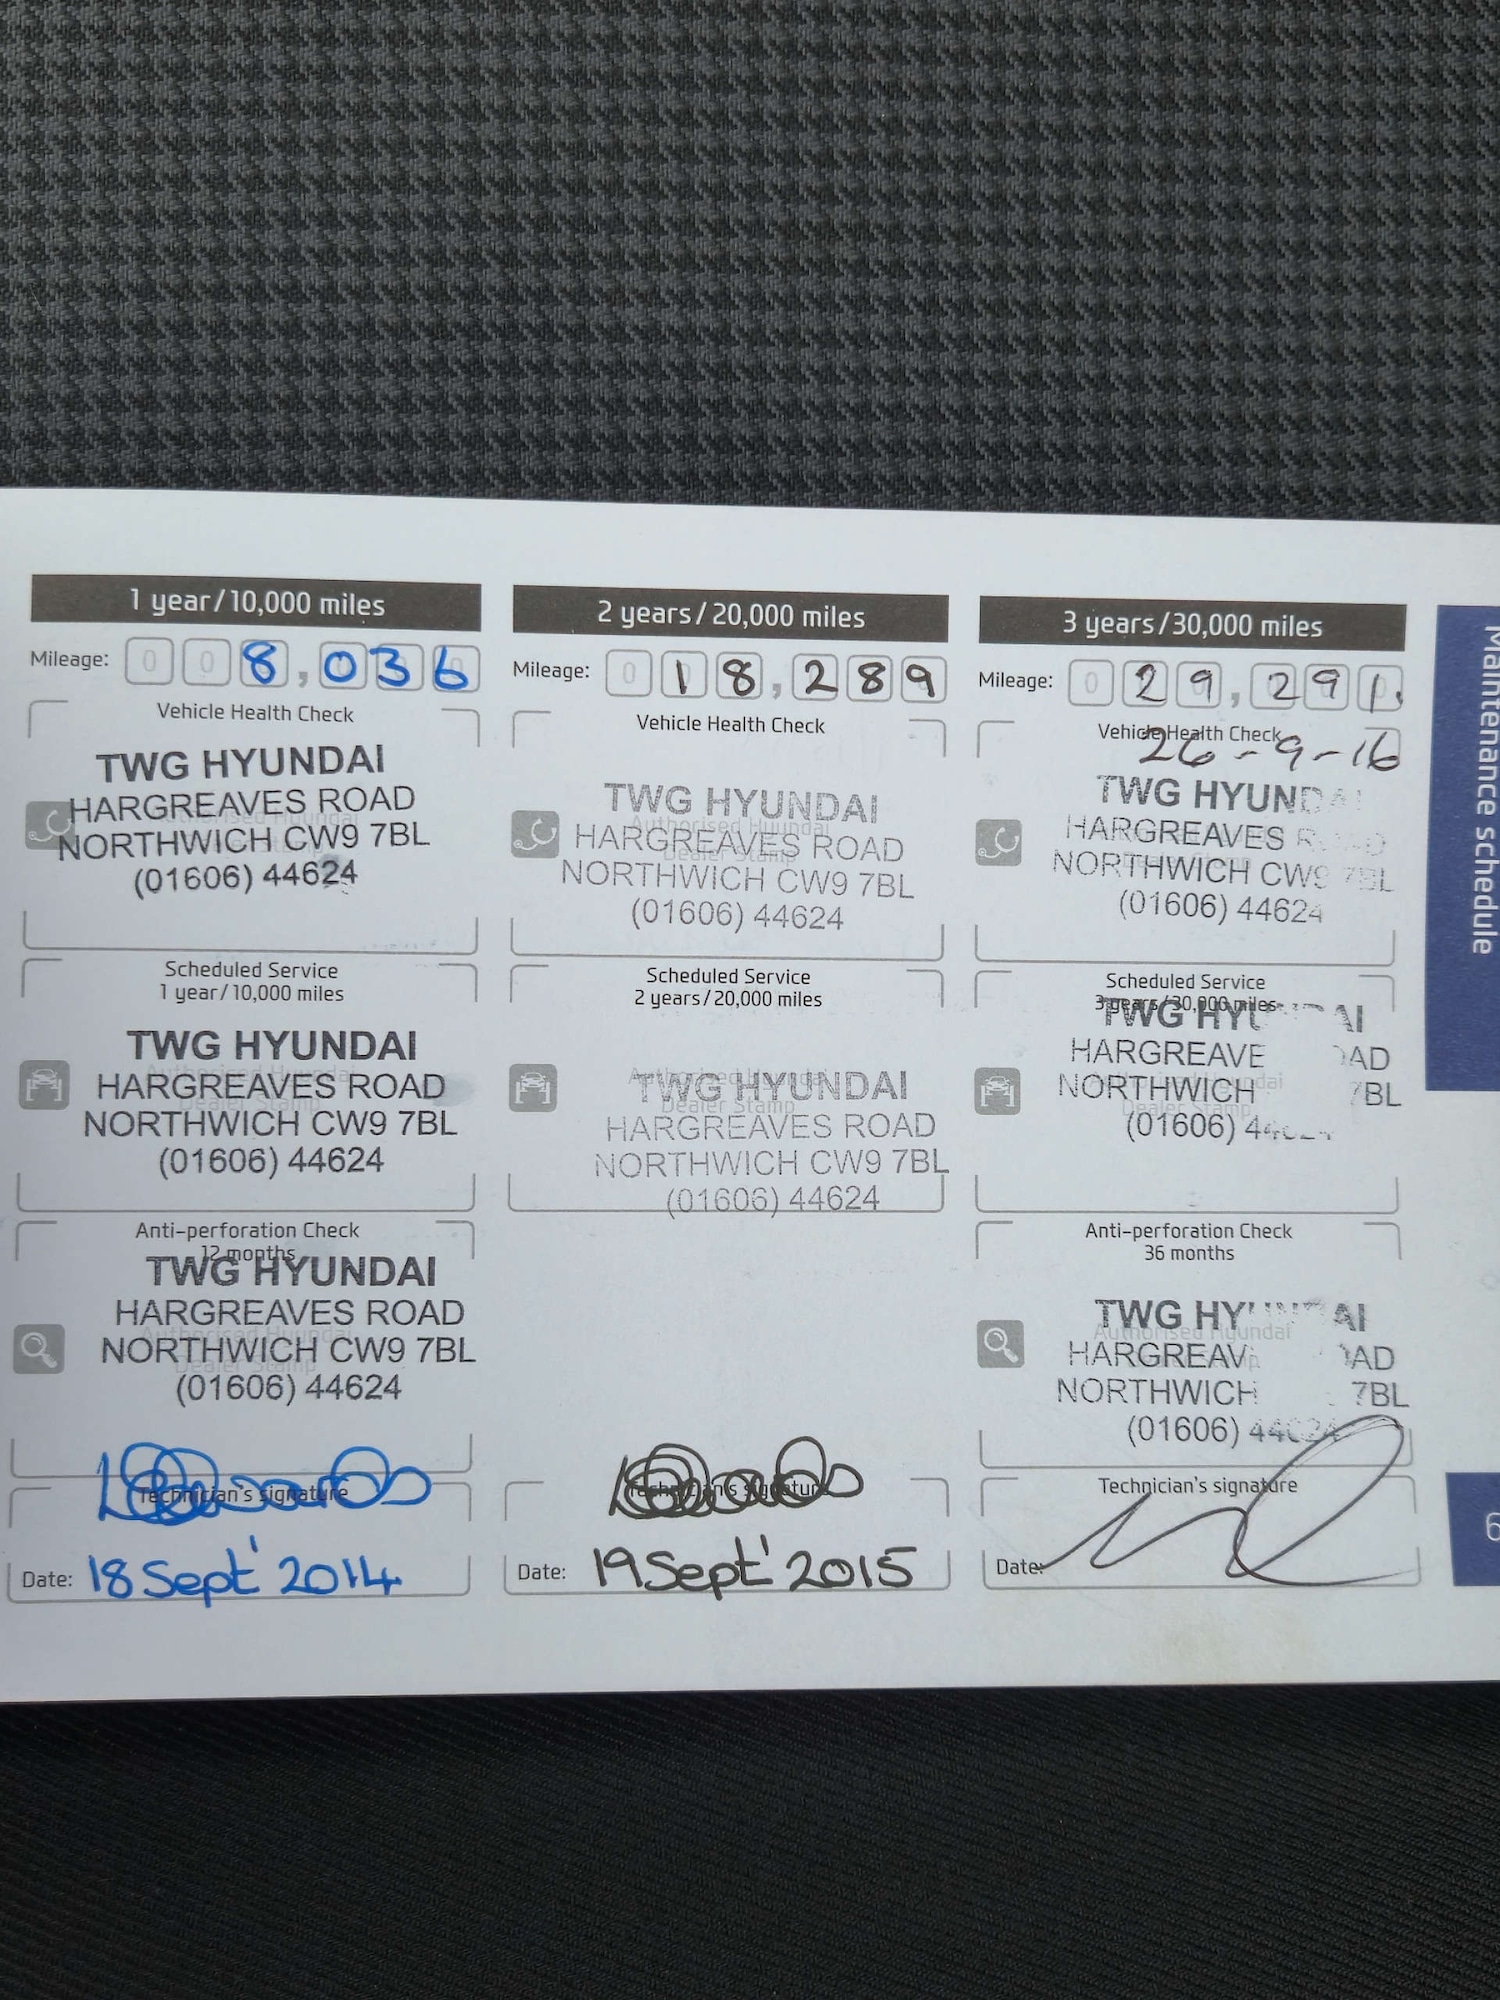 1 year/10,000 miles
Mileage: 008,036
Vehicle Health Check
TWG HYUNDAI
HARGREAVES ROAD
NORTHWICH CW9 7BL
(01606) 44624
Scheduled Service
1 year/10,000 miles
TWG HYUNDAI
HARGREAVES ROAD
NORTHWICH CW9 7BL
(01606) 44624
Anti-perforation Check
12 months
TWG HYUNDAI
HARGREAVES ROAD
NORTHWICH CW9 7BL
(01606) 44624
Technician's signature
Date: 18 Sept' 2014
2 years/20,000 miles
Mileage: 018,289
Vehicle Health Check
Authorised Hyundai
Dealer Stamp
TWG HYUNDAI
HARGREAVES ROAD
NORTHWICH CW9 7BL
(01606) 44624
Scheduled Service
2 years/20,000 miles
Authorised Hyundai
Dealer Stamp
TWG HYUNDAI
HARGREAVES ROAD
NORTHWICH CW9 7BL
(01606) 44624
Technician's signature
Date: 19 Sept' 2015
3 years/30,000 miles
Mileage: 029,291.
Vehicle Health Check
26-9-16
TWG HYUNDAI
HARGREAVES ROAD
NORTHWICH CW9 7BL
(01606) 44624
Scheduled Service
3 years/30,000 miles
TWG HYUNDAI
HARGREAVE AD
NORTHWICH 7BL
(01606)
Anti-perforation Check
36 months
Authorised Hyundai
TWG HYUNDAI
HARGREAV AD
NORTHWICH 7BL
(01606) 44624
Technician's signature
Date:
Maintenance schedule
6